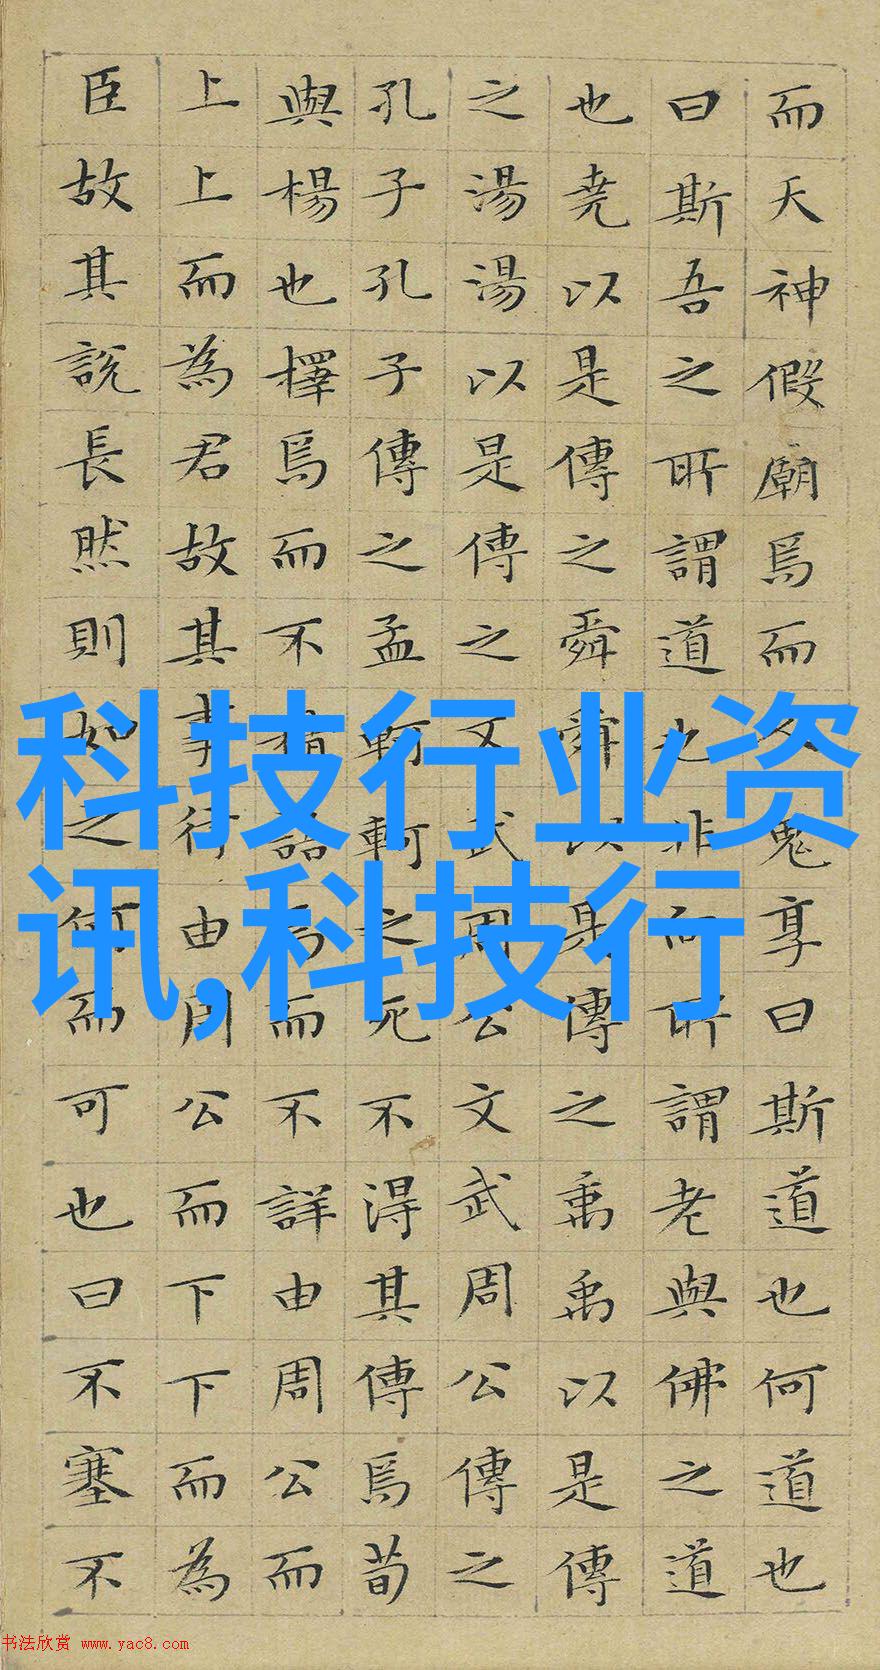 而天神假廟焉而人鬼享曰斯道也何道也
曰斯吾之所謂道也非向所謂老與佛之道
也堯以是傳之舜舜以是傳之禹禹以是傳
之湯湯以是傳之文武周公文武周公傳之
孔子孔子傳之孟軻軻之死不得其傳焉荀
與楊也擇焉而不精語焉而不詳由周公而
上上而為君故其事行由周公而下下而為
臣故其說長然則如之何而可也曰不塞不
科技行业资
讯,科技行
书法欣赏 www.yac8.com